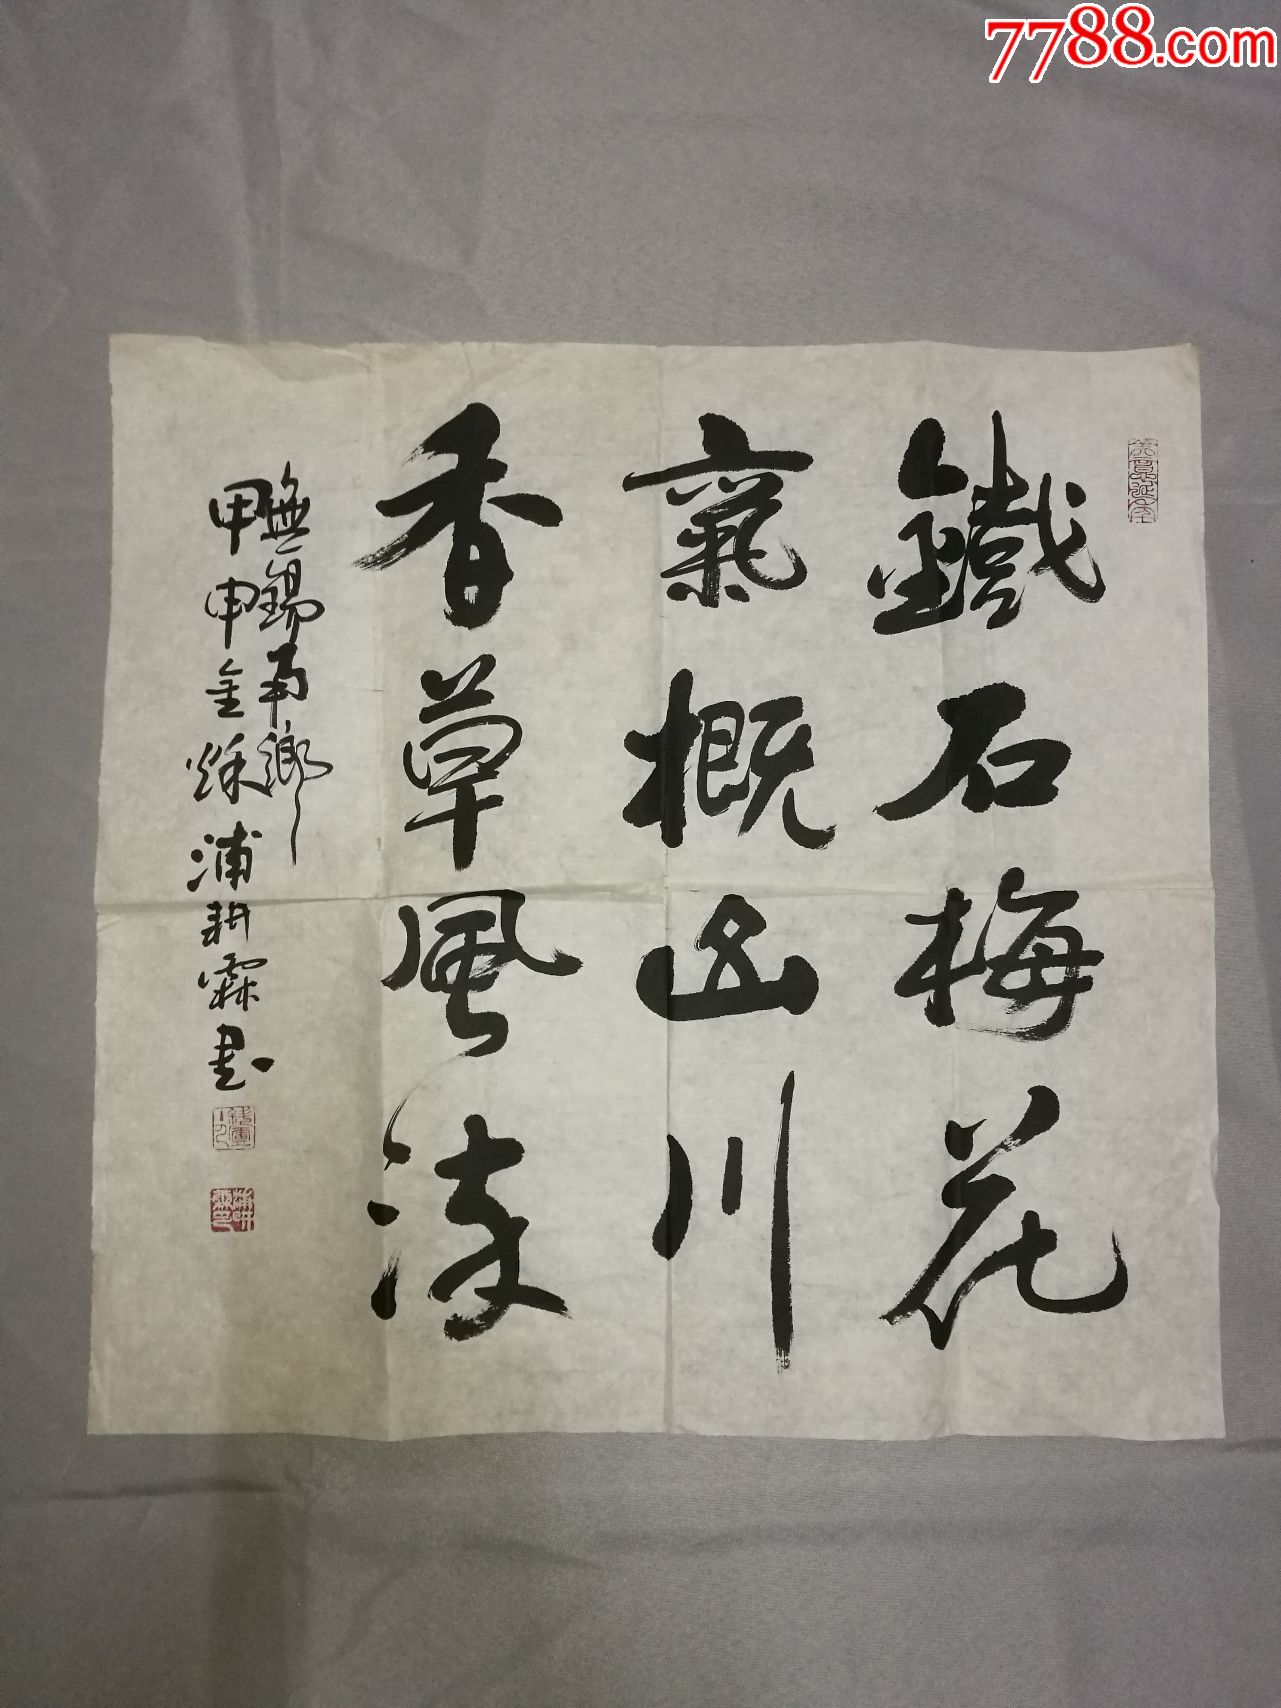 7788.com
鐵石梅花
氣概山川
香草風流
無錫甫鄉
甲申金秋浦耕霖書